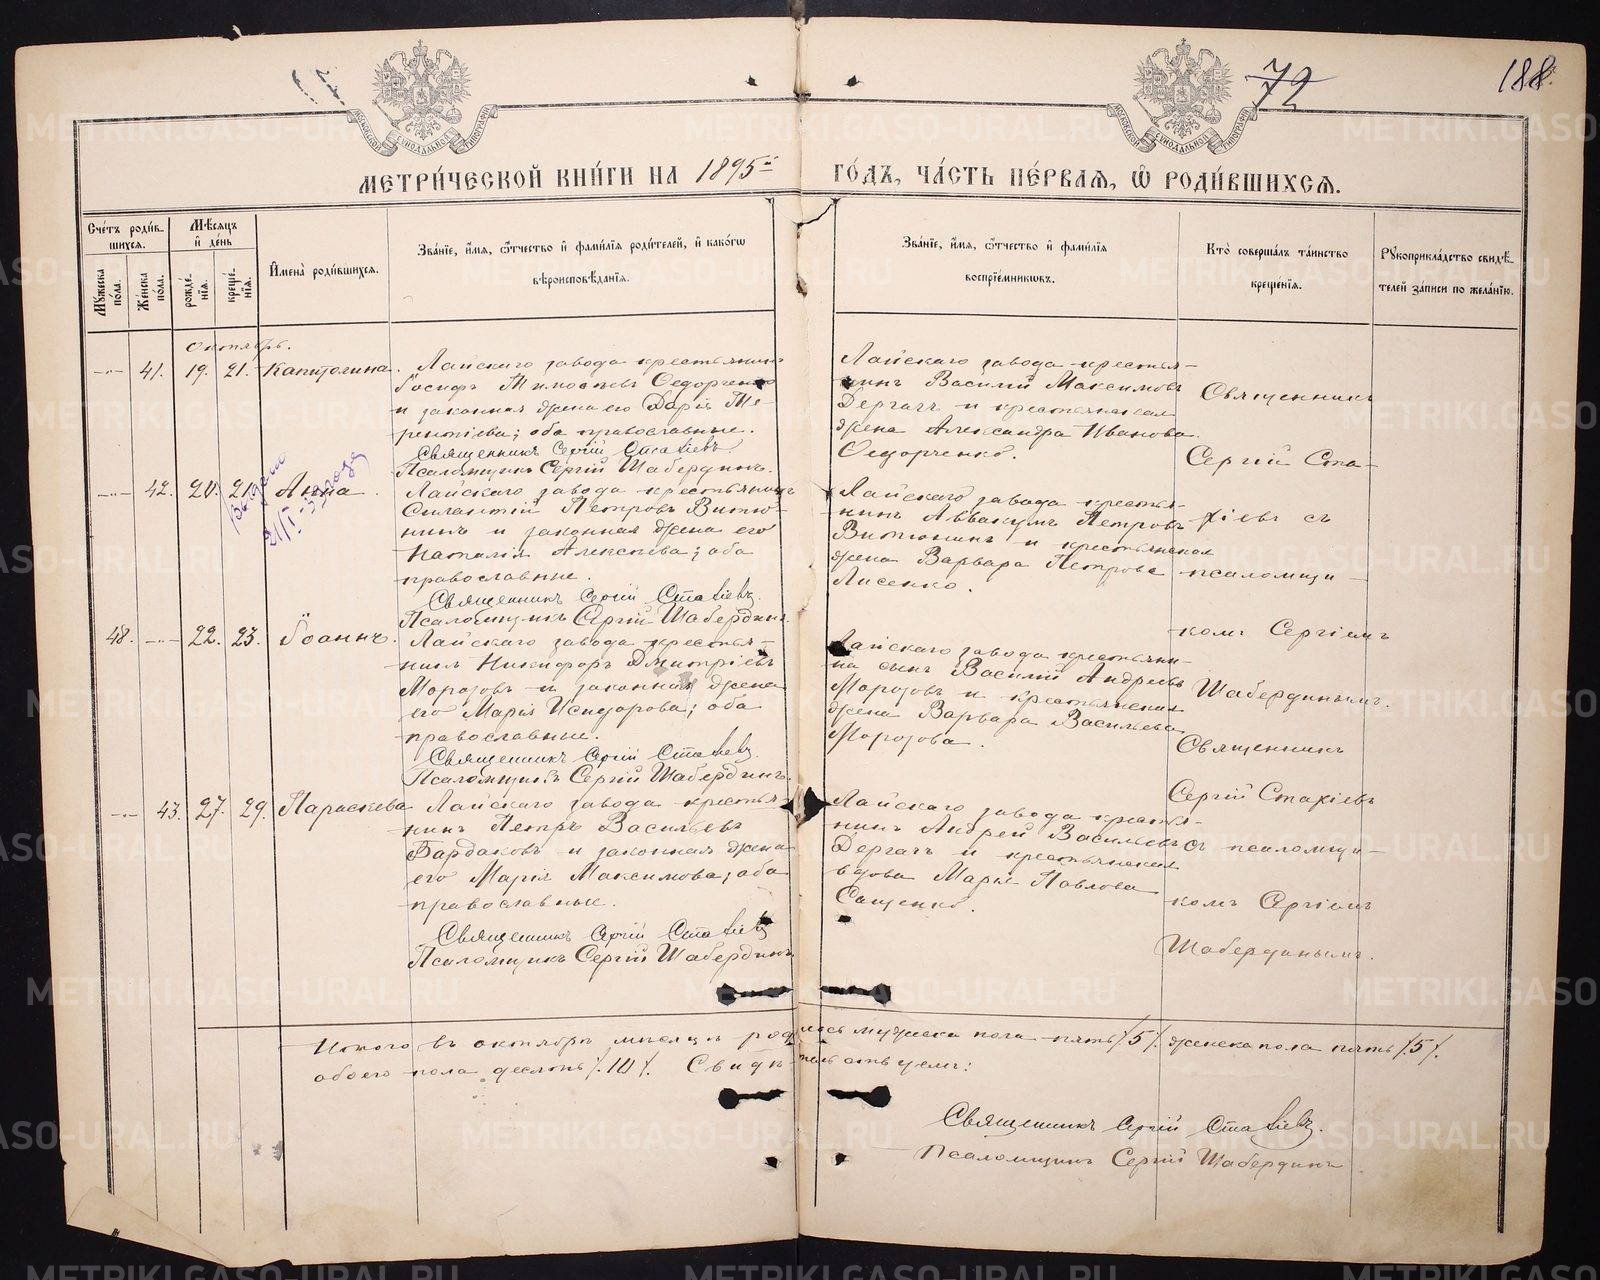 72
188.
МЕТРИ́ЧЕСКОЙ КНИ́ГИ НА 1895й ГО́ДЪ, ЧА́СТЬ ПЕ́РВАЯ, Ѿ РОДИ́ВШИХСЯ.
Сче́тъ роди́в-
шихся.
Му́жеска по́ла.
Же́нска по́ла.
Мѣ́сяцъ
и де́нь
рожде́-
нїя.
креще́-
нїя.
И҆мена̀ роди́вшихся.
Зва́нїе, и҆́мя, ѻ҆́тчество и҆ фами́лїя роди́телей, и҆ како́гѡ
вѣроисповѣ́данїя.
Зва́нїе, и҆́мя, ѻ҆́тчество и҆ фами́лїя
воспрїе́мниковъ.
Кто̀ соверша́лъ та́инство
креще́нїя.
Рукоприкла́дство свидѣ́-
телей за́писи по жела́нїю.
Октябрь.
-„- 41. 19. 21. Капитолина.
Лайскаго завода крестьянинъ
Іосифъ Тимофѣевъ Ѳедорченко
и законная жена его Дарія Те-
рентіева; оба православные.
Священникъ Сергій Стахіевъ
Псаломщикъ Сергій Шабердинъ.
Лайскаго завода крестья-
нинъ Василій Максимовъ
Дергачъ и крестьянская
жена Александра Иванова
Ѳедорченко.
Священникъ
Сергій Ста-
хіевъ съ
псаломщи-
комъ Сергіемъ
Шабердинымъ.
-„- 42. 20. 21. Анна.
21/I-39 года
Лайскаго завода крестьянинъ
Силантій Петровъ Витю-
нинъ и законная жена его
Наталія Алексѣева; оба
православные.
Священникъ Сергій Стахіевъ.
Псаломщикъ Сергій Шабердинъ.
Лайскаго завода крестья-
нинъ Аввакумъ Петровъ
Витюнинъ и крестьянская
жена Варвара Петрова
Лисенко.
48. -„- 22. 23. Іоаннъ.
Лайскаго завода крестья-
нинъ Никифоръ Дмитріевъ
Морозовъ и законная жена
его Марія Исидорова; оба
православные.
Священникъ Сергій Стахіевъ.
Псаломщикъ Сергій Шабердинъ.
Лайскаго завода крестьяни-
на сынъ Василій Андреевъ
Морозовъ и крестьянская
жена Варвара Васильева
Морозова.
Священникъ
Сергій Стахіевъ
съ псаломщи-
комъ Сергіемъ
Шабердинымъ.
-„- 43. 27. 29. Параскева
Лайскаго завода крестья-
нинъ Петръ Васильевъ
Бардаковъ и законная жена
его Марія Максимова; оба
православные.
Священникъ Сергій Стахіевъ
Псаломщикъ Сергій Шабердинъ
Лайскаго завода крестья-
нинъ Андрей Васильевъ
Дергачъ и крестьянская
вдова Марія Павлова
Сащенко.
Итого въ октябрѣ мѣсяцѣ родилось мужеска пола пять /5/. женска пола пять /5/.
обоего пола десять /10/. Свидѣтельствуемъ:
Священникъ Сергій Стахіевъ.
Псаломщикъ Сергій Шабердинъ.
METRIKI.GASO-URAL.RU